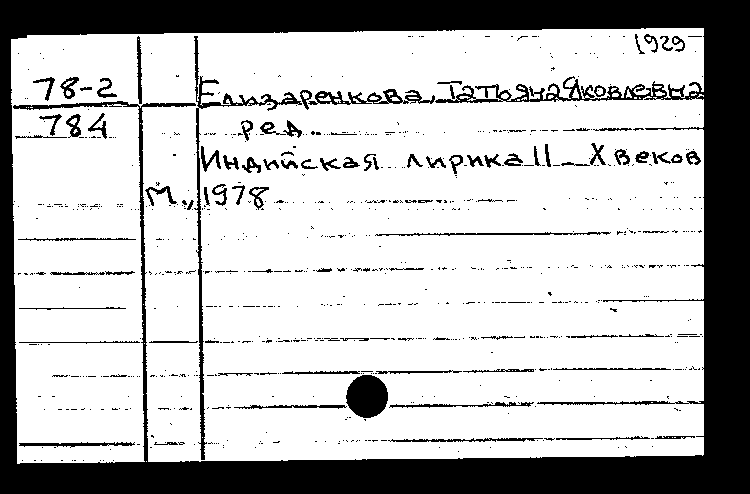 1929
78-2 Елизаренкова, Татьяна Яковлевна
784 ред.
Индийская лирика II - X веков
М., 1978